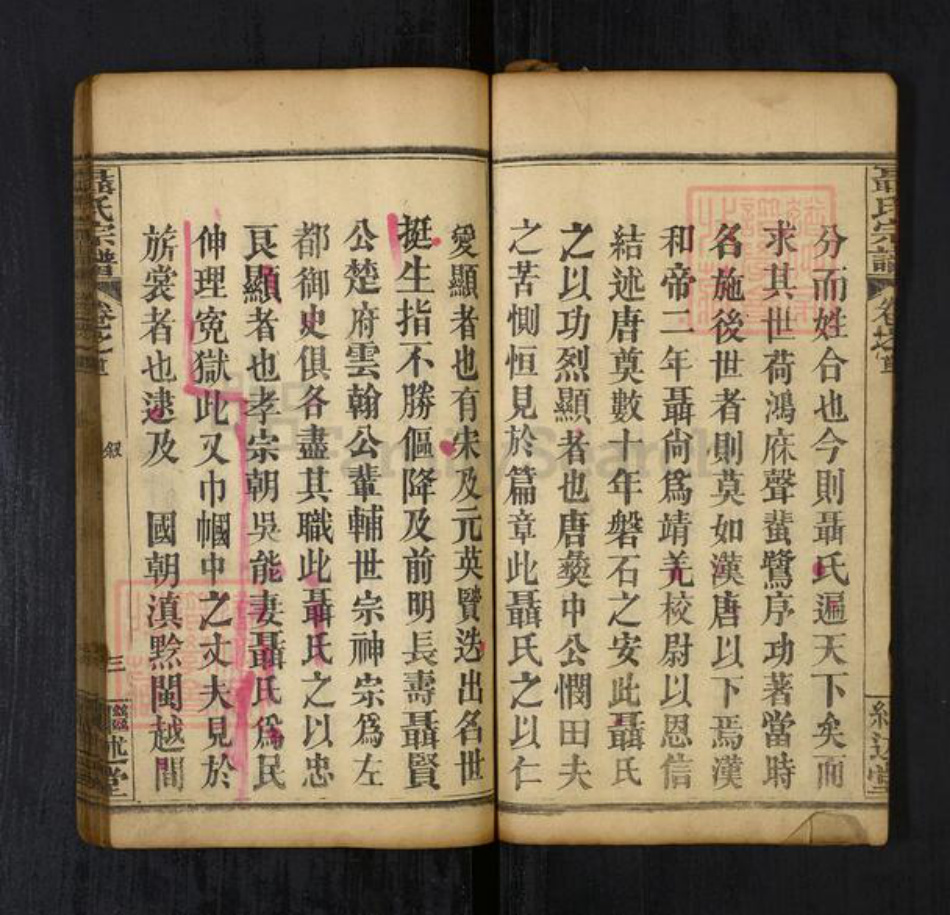 分而姓合也今則聶氏遍天下矣而
求其世荷鴻庥聲蜚鷺序功著當時
名施後世者則莫如漢唐以下焉漢
和帝二年聶尚爲靖羌校尉以恩信
結述唐奠數十年磐石之安此聶氏
之以功烈顯者也唐彜中公憫田夫
之苦惻恒見於篇章此聶氏之以仁
愛顯者也有宋及元英賢迭出名世
挺生指不勝傴降及前明長壽聶賢
公楚府雲翰公輩輔世宗神宗爲左
都御史俱各盡其職此聶氏之以忠
艮顯者也孝宗朝吳能妻聶氏爲民
伸理寃獄此又巾幗中之丈夫見於
旂裳者也逮及 國朝滇黔閩越間
聶氏宗譜
叙
三
述堂